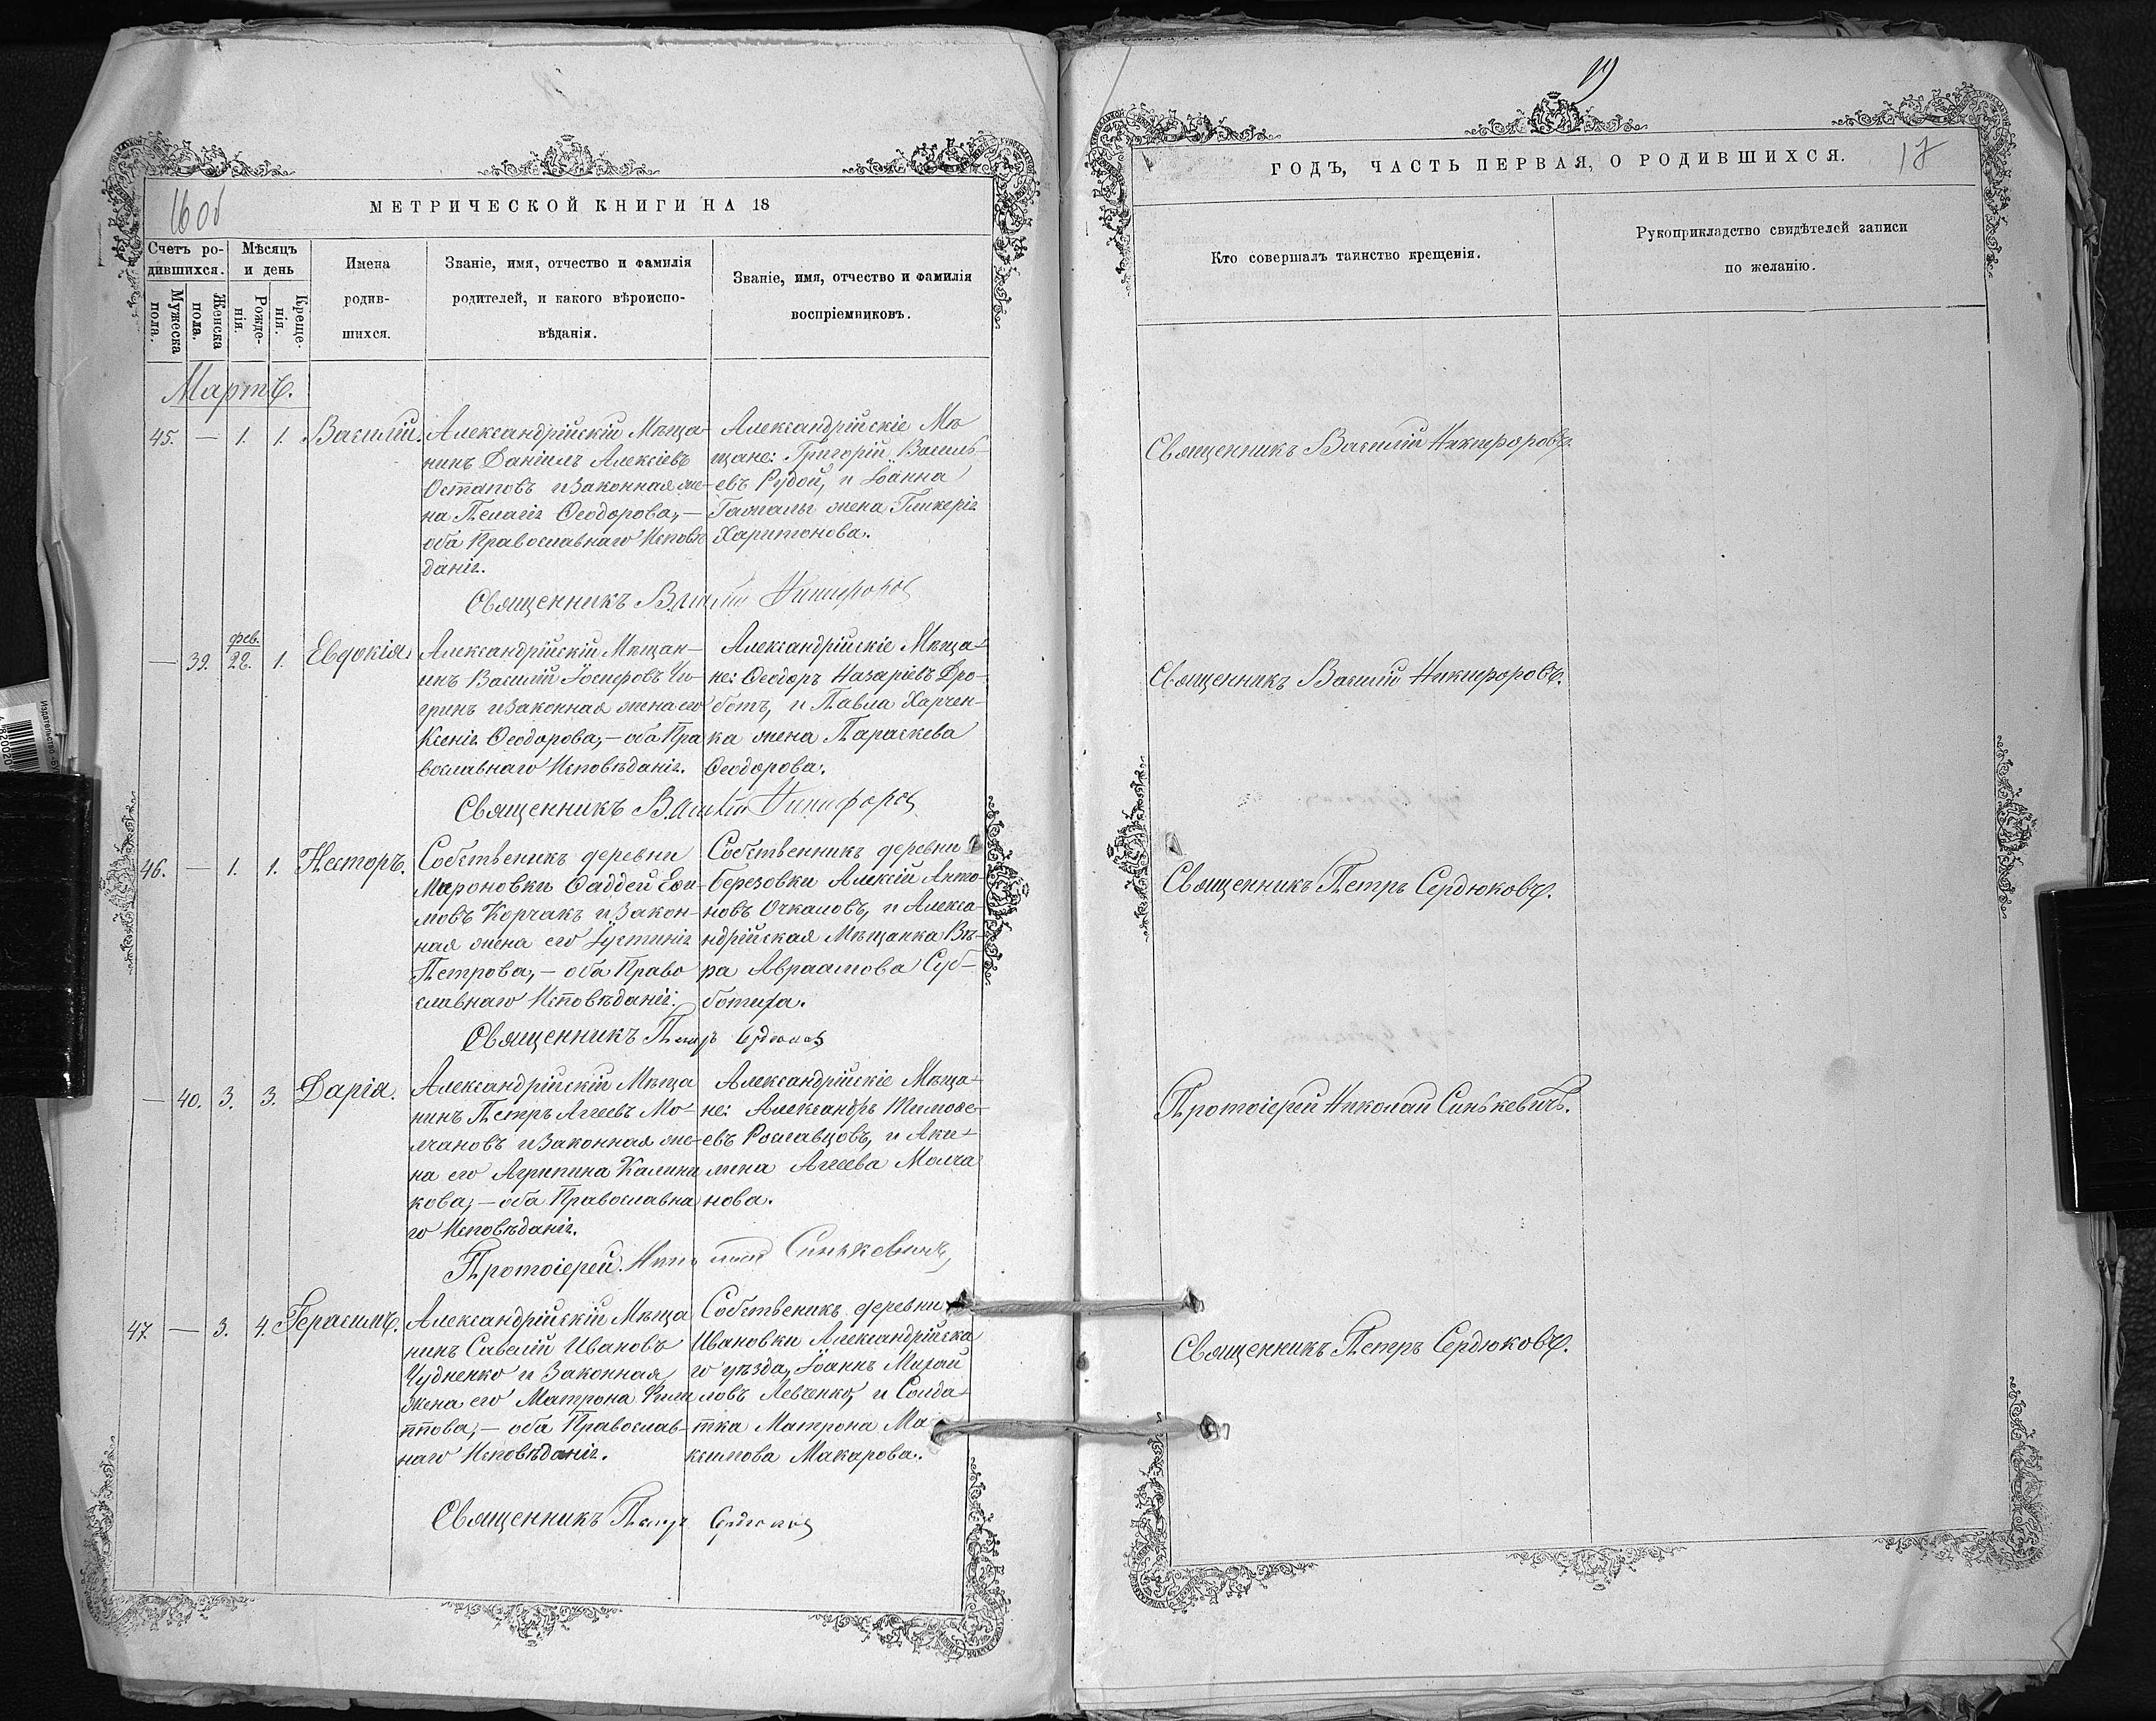 16 об
МЕТРИЧЕСКОЙ КНИГИ НА 18
Счетъ ро-
дившихся.
Мужеска
пола.
Женска
пола.
Мѣсяцъ
и день
Рожде-
нія.
Креще-
нія.
Имена
родив-
шихся.
Званіе, имя, отчество и фамилія
родителей, и какого вѣроиспо-
вѣданія.
Званіе, имя, отчество и фамилія
воспріемниковъ.
Мартъ.
45. — 1. 1. Василій.
Александрійскій Мѣща-
нинъ Даніилъ Алексіевъ
Остаповъ и законная же-
на Пелагія Ѳеодорова, —
оба Православнаго Исповѣ
данія.
Александрійскіе Мѣ
щане: Григорій Василь-
евъ Рудой, и Іоанна
жена Гликерія
Харитонова.
Священникъ Василій Никифоровъ
— 39. фев. 28. 1. Евдокія.
Александрійскій Мѣщан-
инъ Василій Іосифовъ Чи-
гринъ и законная жена его
Ксенія Ѳеодорова, — оба Пра
вославнаго Исповѣданія.
Александрійскіе Мѣща-
не: Ѳеодоръ Назаріевъ Дро-
ботъ, и Павла Харчен-
ка жена Параскева
Ѳеодорова.
Священникъ Василій Никифоровъ
46. — 1. 1. Несторъ.
Собственикъ деревни
Мироновки Ѳаддей Еѳи-
мовъ Корчакъ и Закон-
ная жена его Іустинія
Петрова, — оба Право
славнаго Исповѣданія.
Собственникъ деревни
Березовки Алексій Анто-
новъ Очкаловъ, и Алекса-
ндрійская Мѣщанка Вѣ-
ра Авраамова Суб-
ботира.
Священникъ Петръ Сердюковъ
— 40. 3. 3. Дарія.
Александрійскій Мѣща
нинъ Петръ Аггеевъ Мо-
лчановъ и законная же-
на его Агрипина Калини
кова, — оба Православна
го Исповѣданія.
Александрійскіе Мѣща-
не: Александръ Тимоѳе-
евъ Рославцовъ, и Аки-
лина Аггеева Молча
нова.
Протоіерей Николай Синькевичъ
47. — 3. 4. Герасимъ.
Александрійскій Мѣща
нинъ Савелій Ивановъ
Чудненко и Законная
жена его Матрона Фили
ппова, — оба Православ-
наго Исповѣданія.
Собственикъ деревни
Ивановки Александрійска
го уѣзда, Іоаннъ Михай
ловъ Левченко, и Солда-
тка Матрона Ма-
ксимова Макарова.
Священникъ Петръ Сердюковъ
ГОДЪ, ЧАСТЬ ПЕРВАЯ, О РОДИВШИХСЯ.
17
Кто совершалъ таинство крещенія.
Рукоприкладство свидѣтелей записи
по желанію.
Священникъ Василій Никифоровъ.
Священникъ Василій Никифоровъ.
Священникъ Петръ Сердюковъ.
Протоіерей Николай Синькевичъ.
Священникъ Петръ Сердюковъ.